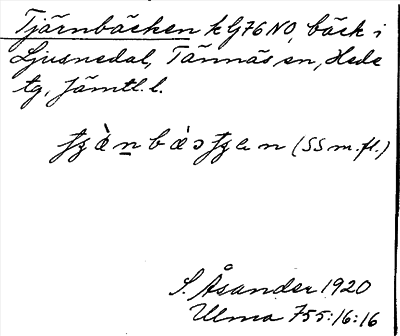 Tjärnbäcken k G76 NO, bäck i
Ljusnedal, Tännäs sn, Hede
tg, Jämtl. l.
(SS m.fl.)
S. Åsander 1920
Ulma 755:16:16